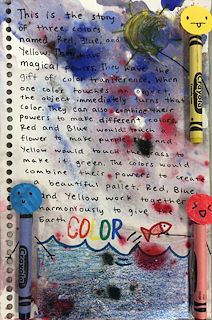 This is the story
of three colors
named Red, Blue, and
Yellow. They have
magical powers. They have the
gift of color transference. When
one color touches an object,
the object immediately turns that
color. They can also combine their
powers to make different colors.
Red and Blue would touch a
flower to make purple, and
Yellow would touch the grass to
make it green. The colors would
combine their powers to create
a beautiful pallet. Red, Blue
and Yellow work together
harmoniously to give
Earth COLOR
Crayola
Crayola
Crayola